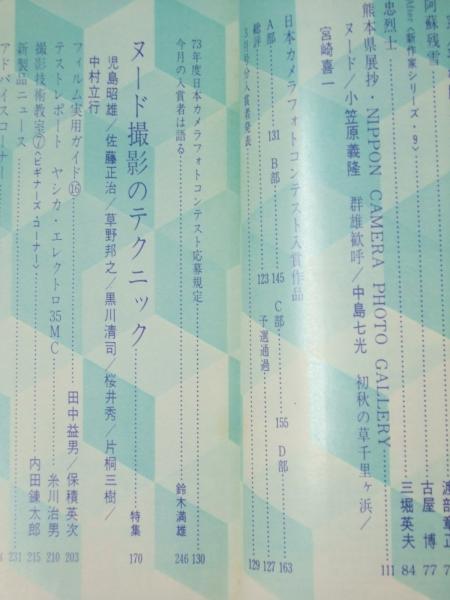 阿蘇残雪
古屋 博 77
〈新作家シリーズ・9〉
三堀英夫 84
忠烈士
熊本県展抄・NIPPON CAMERA PHOTO GALLERY 111
ヌード/小笠原義隆 群雄歓呼/中島七光 初秋の草千里ヶ浜/
宮崎喜一
日本カメラフォトコンテスト入賞作品
A部 131 B部 145 C部 155 D部 163
総評 123 予選通過 127
3月号分入賞者発表 129
73年度日本カメラフォトコンテスト応募規定 130
今月の入賞者は語る 鈴木満雄 246
ヌード撮影のテクニック 特集 170
児島昭雄/佐藤正治/草野邦之/黒川清司/桜井秀/片桐三樹/
中村立行
フィルム実用ガイド⑯ 田中益男/保積英次 203
テストレポート ヤシカ・エレクトロ35MC 糸川治男 210
撮影技術教室⑦〈ビギナーズ・コーナー〉 内田錬太郎 215
新製品ニュース 231
アドバイスコーナー